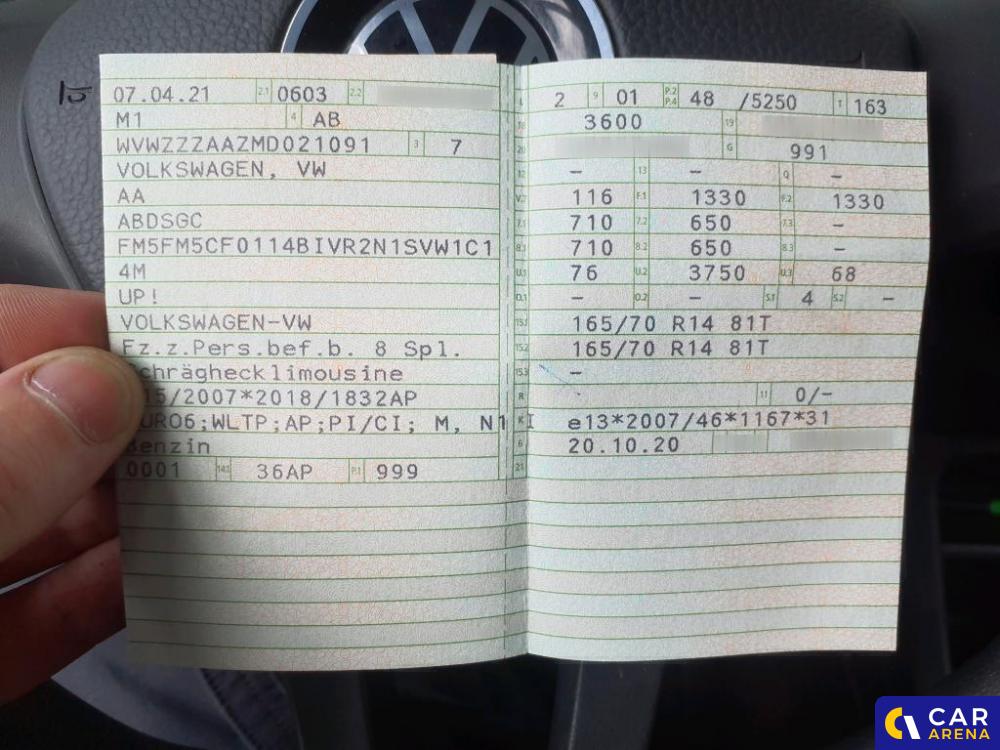 07.04.21 2.1 0603 2.2
M1 4 AB
WVWZZZAAZMD021091 3 7
VOLKSWAGEN, VW
AA
ABDSGC
FM5FM5CF0114BIVR2N1SVW1C1
4M
UP!
VOLKSWAGEN-VW
Fz.z.Pers.bef.b. 8 Spl.
chräghecklimousine
15/2007*2018/1832AP
URO6;WLTP;AP;PI/CI; M, N1 I
Benzin
0001 14.1 36AP P.1 999
L 2 9 01 P.2 P.4 48 /5250 T 163
18 3600 19
20 G 991
12 – 13 – Q –
V.7 116 F.1 1330 F.2 1330
7.1 710 7.2 650 7.3 –
8.1 710 8.2 650 8.3 –
U.1 76 U.2 3750 U.3 68
O.1 – O.2 – S.1 4 S.2 –
15.1 165/70 R14 81T
15.2 165/70 R14 81T
15.3 –
R 11 0/–
K e13*2007/46*1167*31
6 20.10.20
21
CAR
ARENA